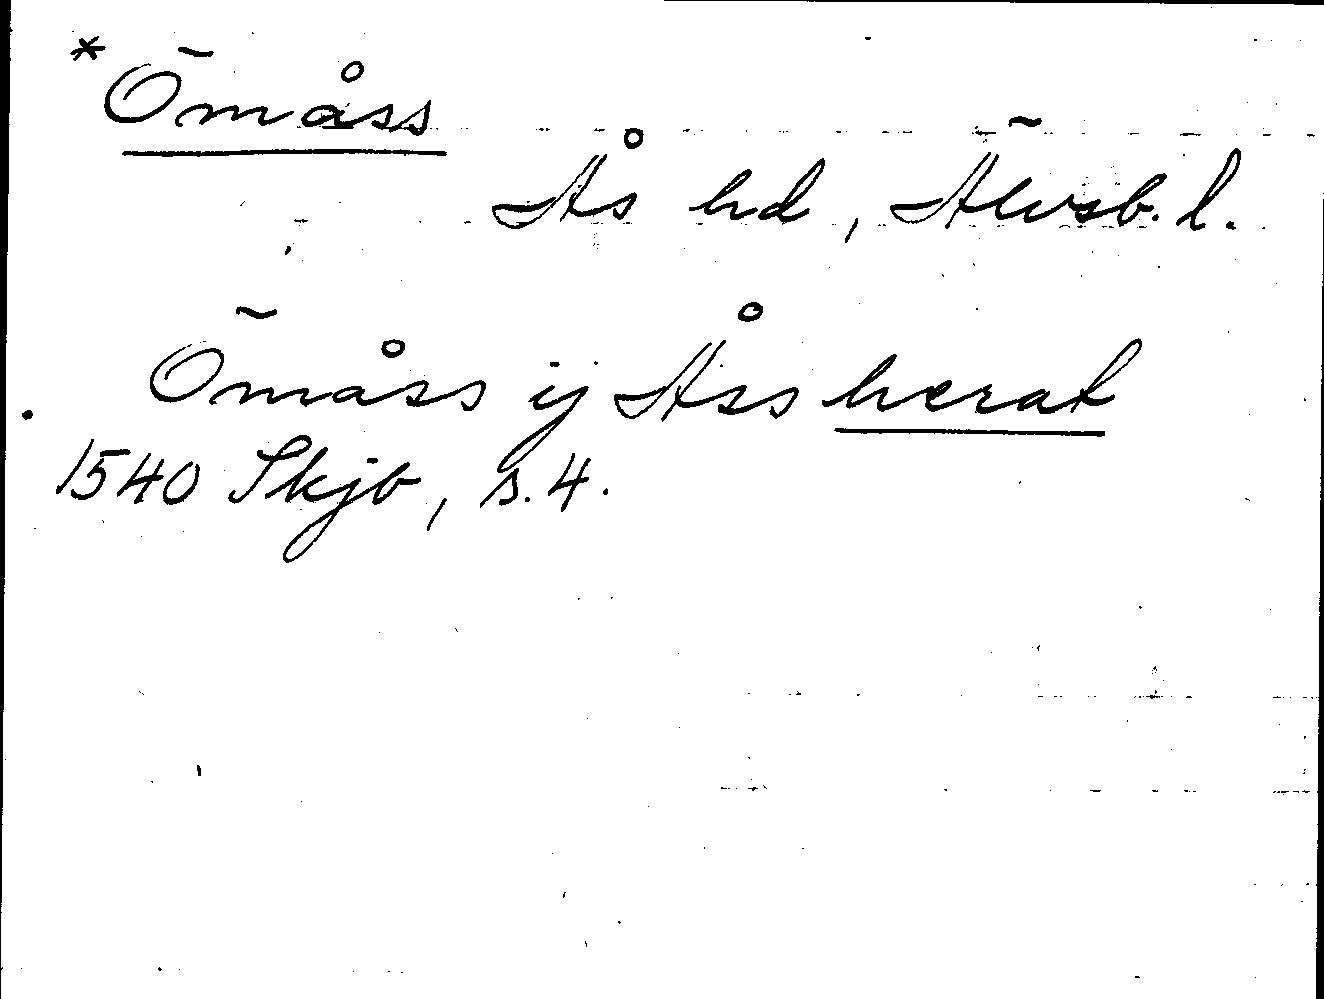 *Ömåss
Ås hd, Älvsb. l.
Ömåss ij Åss herat
1540 Skjb, s. 4.